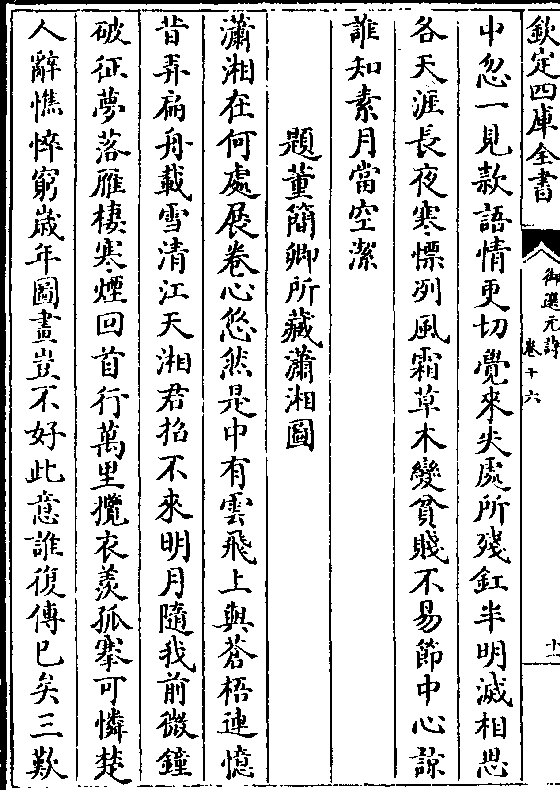 欽定四庫全書
御選元詩
卷十六
十一
中忽一見款語情更切覺來失處所殘釭半明滅相思
各天涯長夜寒慄列風霜草木變貧賤不易節中心諒
誰知素月當空潔
題董簡卿所藏瀟湘圖
瀟湘在何處展卷心悠然是中有雲飛上與蒼梧連憶
昔弄扁舟載雪清江天湘君招不來明月隨我前微鐘
破征夢落雁棲寒煙回首行萬里攬衣羨孤騫可憐楚
人辭憔悴窮歲年圖畫豈不好此意誰復傳已矣三歎